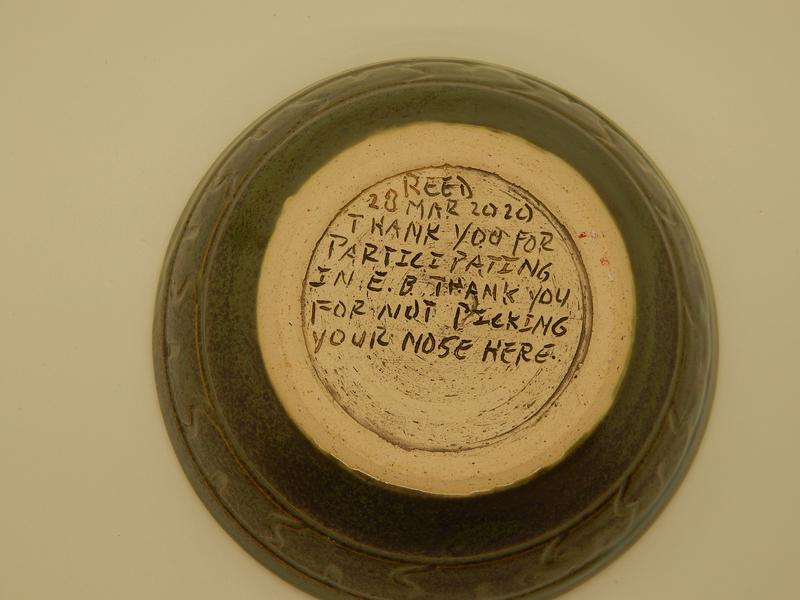 REED
28 MAR 2020
THANK YOU FOR
PARTICIPATING
IN E.B. THANK YOU
FOR NOT PICKING
YOUR NOSE HERE.